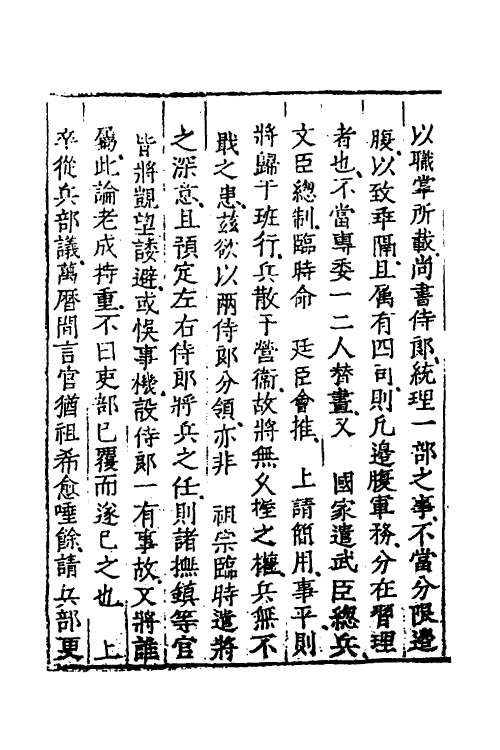 以職掌所載尚書侍郎統理一部之事不當分限邊
腹以致乖隔且属有四司則凡邊腹軍務分在管理
者也不當專委一二人替畫又　國家遣武臣總兵
文臣總制臨時命　廷臣會推　上請簡用事平則
將歸于班行兵散于營衞故將無久握之權兵無不
戢之患茲欲以兩侍郎分領亦非　祖宗臨時遣將
之深意且預定左右侍郎將兵之任則諸撫鎮等官
皆將觀望諉避或悞事機設侍郎一有事故又將誰
屬此論老成持重不曰吏部已覆而遂已之也　上
卒從兵部議萬曆間言官猶祖希愈唾餘請兵部更